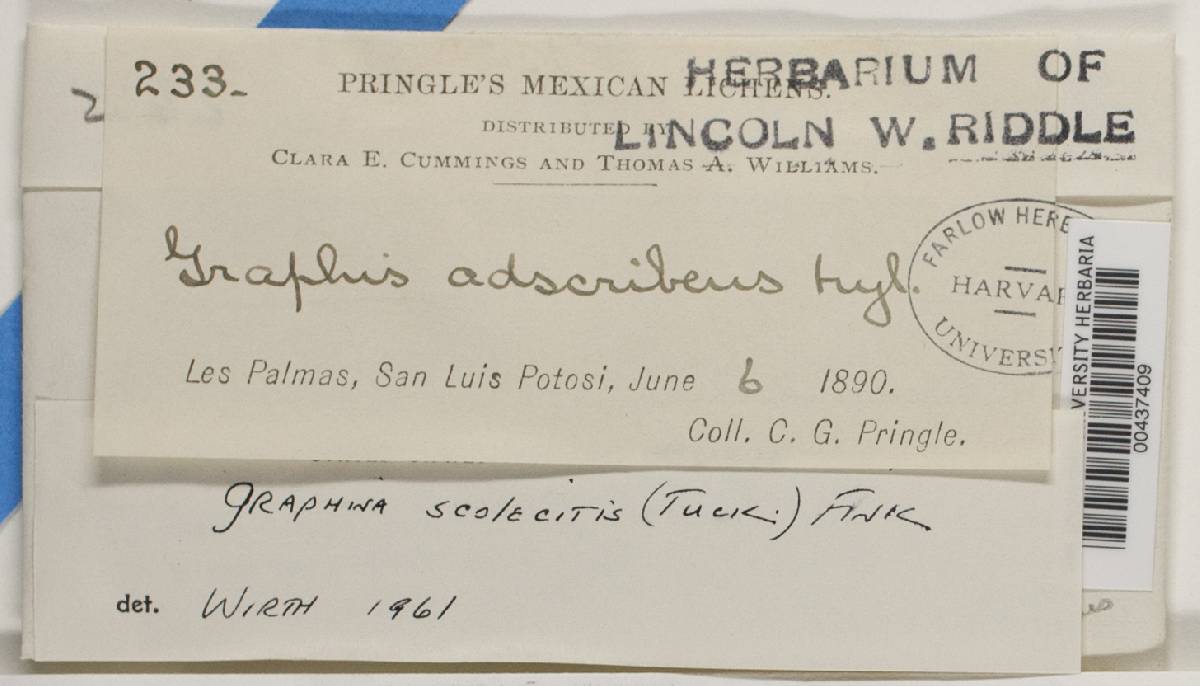 233-
PRINGLE'S MEXICAN LICHENS.
HERBARIUM OF
DISTRIBUTED BY
LINCOLN W. RIDDLE
CLARA E. CUMMINGS AND THOMAS A. WILLIAMS.
Graphis adscribens Nyl.
FARLOW HERB
HARVAR
UNIVERSI
Les Palmas, San Luis Potosi, June 6 1890.
Coll. C. G. Pringle.
VERSITY HERBARIA
00437409
GRAPHINA SCOLECITIS (TUCK.) FINK
det. WIRTH 1961